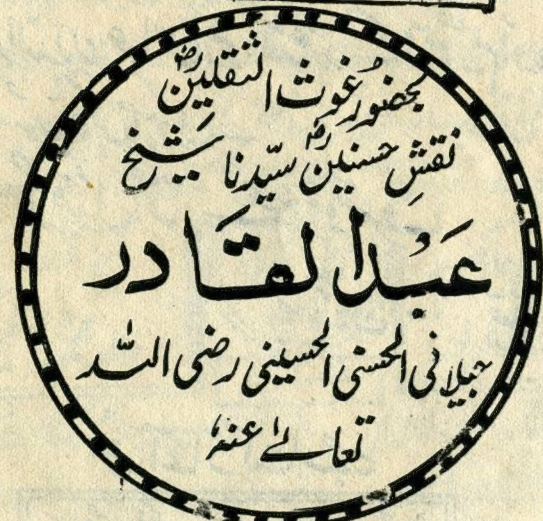 بحضور غوث الثقلینؓ
نقشِ حسنینؓ سیّدنا شیخ
عَبدُالقَادر
جیلانی الحسنی الحسینی رضی اللہ
تعالےٰ عنہٗ